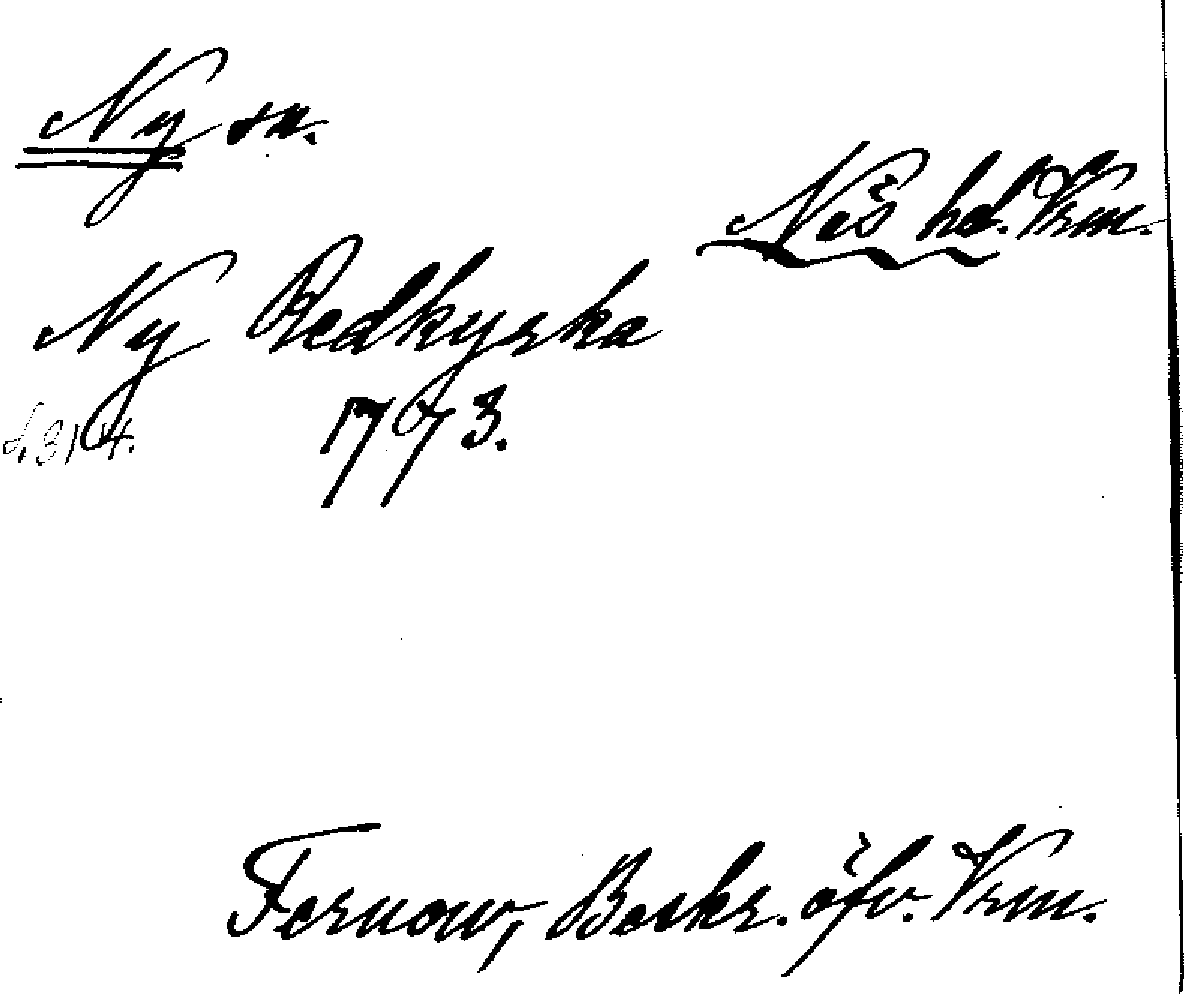 Ny sn.
Näs hd. Vrm.
Ny Redkyrka
1773.
Fernow, Beskr. öfv. Vrm.